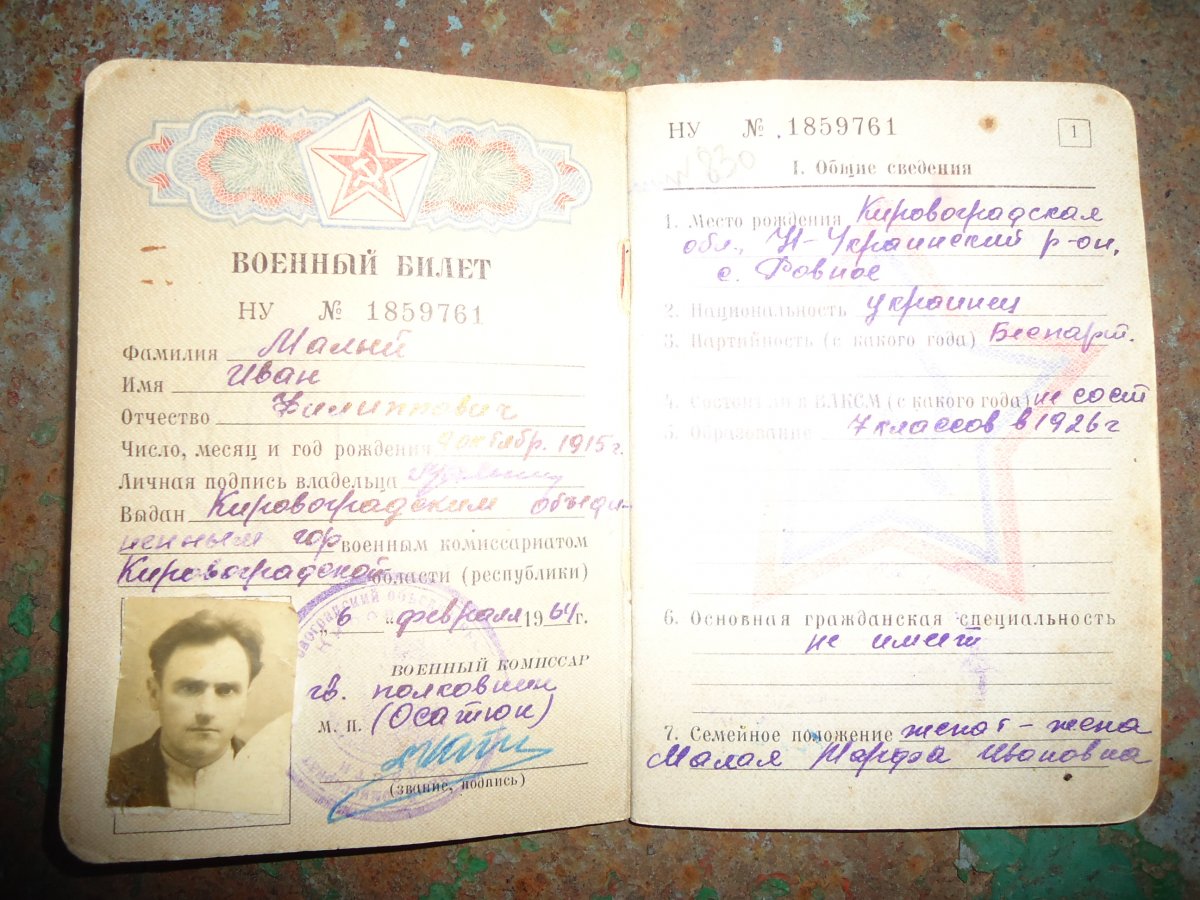 ВОЕННЫЙ БИЛЕТ
НУ № 1859761
Фамилия Малый
Имя Иван
Отчество Филиппович
Число, месяц и год рождения 9 октябр. 1915 г.
Личная подпись владельца
Выдан Кировоградским объеди-
ненным гор военным комиссариатом
Кировоградской области (республики)
„6 “ февраля 1964 г.
ВОЕННЫЙ КОМИССАР
гв. полковник
М. П. (Осатюк)
(звание, подпись)
НУ № 1859761
1
830
I. Общие сведения
1. Место рождения Кировоградская
обл., Н-Украинский р-он,
с. Ровное
2. Национальность украинец
3. Партийность (с какого года) Беспарт.
4. Состоял ли в ВЛКСМ (с какого года) не сост
5. Образование 7 классов в 1926 г
6. Основная гражданская специальность
не имеет
7. Семейное положение женат - жена
Малая Марфа Ивановна